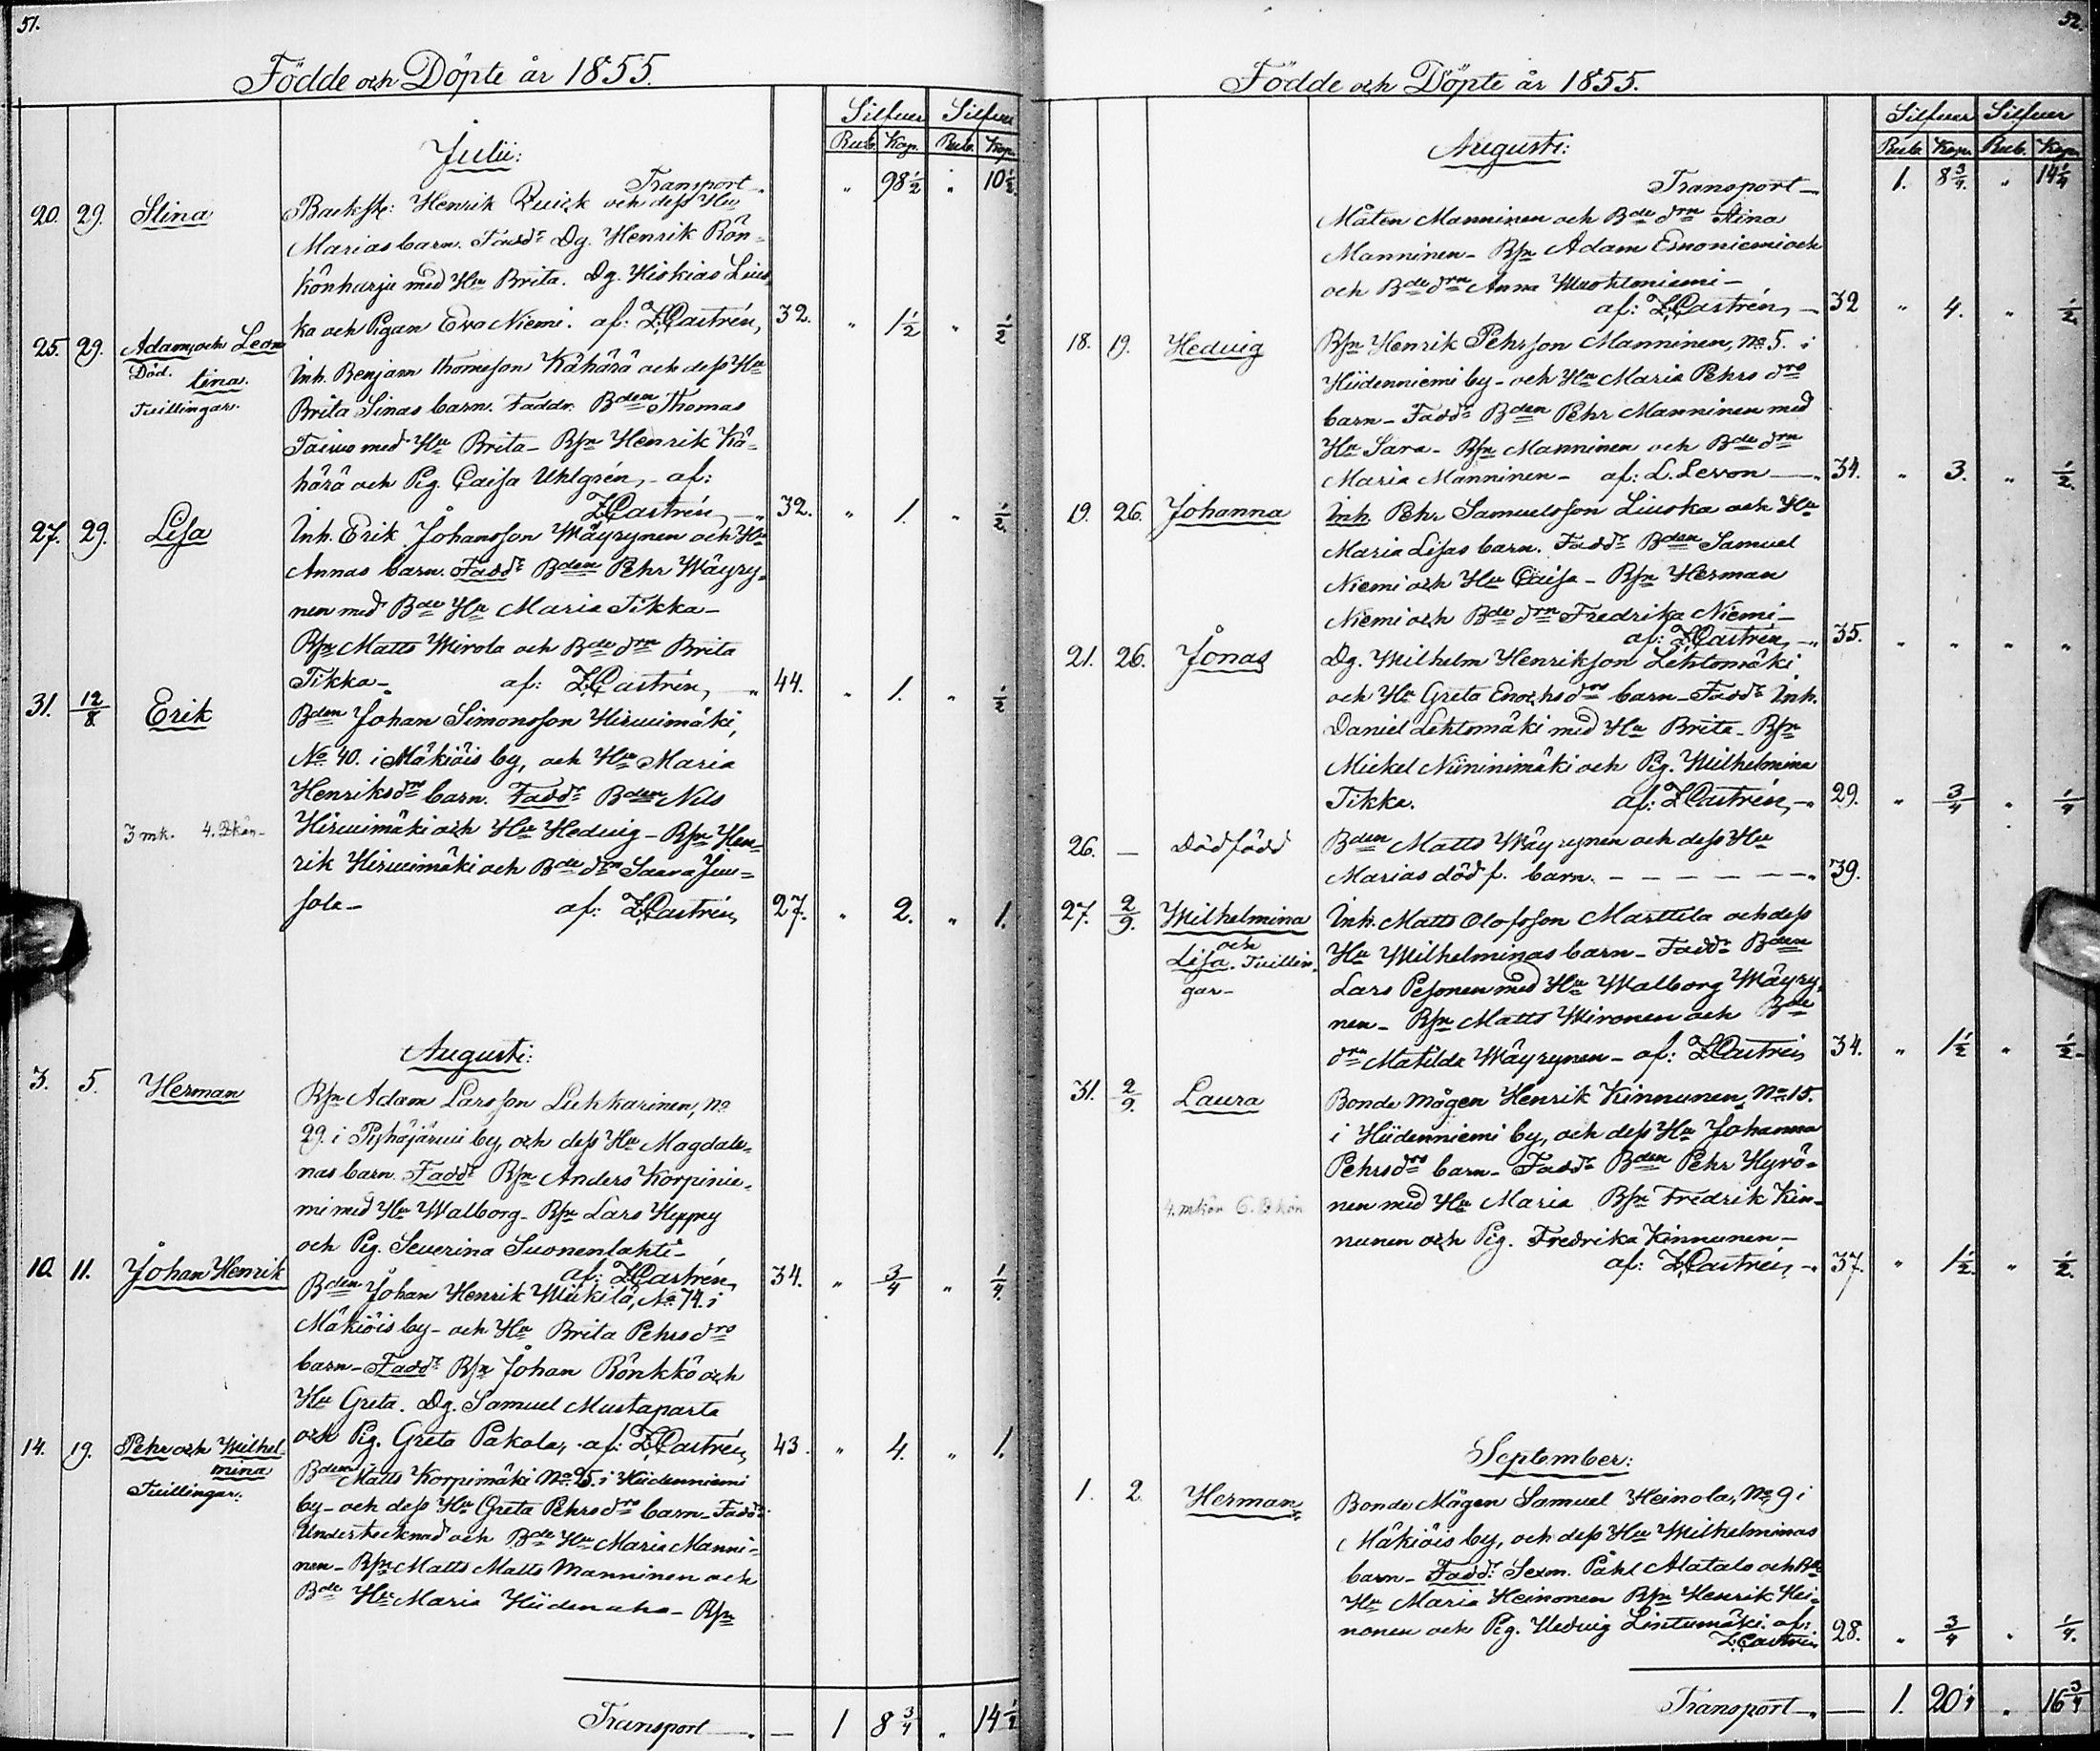 51.
Födde och Döpte år 1855.
Silfver Silfver
Rub. Kop. Rub. Kop.
Julii:
Transport " 98 1/2 " 10 1/2
20. 29. Stina Backst: Henrik Quick och dess Hu
Marias barn. Fadd: Dg. Henrik Rön=
könharju med Hu Brita. Dg. Hiskias Lius
ka och Pigan Eva Niemi. af: Z. Castrén, 32. " 1 1/2 " 1/2
25. 29. Adam, och Leon
Död. tina.
Tvillingar.
Inh. Benjam Thomsson Kähärä och dess Hu
Brita Sinas barn. Faddr. Bden Thomas
Tacius med Hu Brita - Bsn Henrik Kä=
härä och Pig. Caisa Uhlgrén, - af:
Z. Castrén 32. " 1. " 1/2
27. 29. Lisa Inh. Erik Johansson Wäyrynen och Hu
Annas barn. Fadd: Bden Pehr Wäyry=
nen med Bde Hu Maria Tikka -
Bsn Matts Mirola och Bde drn Brita
Tikka - af: Z. Castrén, 44. " 1. " 1/2
31. 12/8 Erik Bden Johan Simonsson Hirvimäki,
No 40. i Mäkiöis by, och Hu Maria
Henriksdrs barn. Fadd: Bden Nils
3 mk. 4. Qkön - Hirvimäki och Hu Hedvig - Bsn Hen=
rik Hirvimäki och Bde drn Saara Juu=
sola - af: Z. Castrén, 27. " 2. " 1.
Augusti:
3. 5. Herman Bsn Adam Larsson Luhkarinen, No
29. i Pyhäjärvi by, och dess Hu Magdale=
nas barn. Fadd: Bsn Anders Korpinie=
mi med Hu Walborg - Bsn Lars Hyyny
och Pig. Severina Suonenlahti -
af: Z. Castrén, 34. " 3/4 " 1/4
10. 11. Johan Henrik Bden Johan Henrik Mikilä, No 74. i
Mäkiöis by - och Hu Brita Pehrsdrs
barn - Fadd: Bsn Johan Rönkkö och
Hu Greta. Dg. Samuel Mustaparta
och Pig. Greta Pakola, - af: Z. Castrén, 43. " 4. " 1.
14. 19. Pehr och Wilhel
mina
Tvillingar.
Bden Matts Korpimäki No 25. i Hiidenniemi
by - och dess Hu Greta Pehrsdrs barn - Fadd:
Undertecknad och Bde Hu Maria Manni=
nen - Bsn Matts Matts Manninen och
Bde Hu Maria Hiidenaho - Bsn
Transport - 1 8 3/4 " 14 1/4
52.
Födde och Döpte år 1855.
Silfver Silfver
Rub. Kop. Rub. Kop.
Augusti:
Transport 1. 8 3/4 " 14 1/4
Måten Manninen och Bde drn Stina
Manninen - Bsn Adam Esnoniemi och
och Bde drn Anna Wuohtoniemi -
af: Z. Castrén, 32 " 4. " 1/2
18. 19. Hedvig Bsn Henrik Pehrsson Manninen, No 5. i
Hiidenniemi by - och Hu Maria Pehrs drs
barn - Fadd: Bden Pehr Manninen med
Hu Sara - Bsn Manninen och Bde drn
Maria Manninen - af: L. Levon 34. " 3. " 1/2
19. 26. Johanna Inh. Pehr Samuelsson Liuska och Hu
Maria Lisas barn. Fadd: Bden Samuel
Niemi och Hu Caisa - Bsn Herman
Niemi och Bde drn Fredrika Niemi -
af: Z. Castrén, 35. " " " "
21. 26. Jonas Dg. Wilhelm Henriksson Lehtomäki
och Hu Greta Enochsdrs barn - Fadd: Inh.
Daniel Lehtomäki med Hu Brita - Bsn
Mickel Niininimäki och Pig. Wilhelmina
Tikka. af: Z. Castrén, 29. " 3/4 " 1/4
26. - Dödfödd Bden Matts Wäyrynen och dess Hu
Marias dödf. barn. - - - - - 39.
27. 2/9. Wilhelmina
och
Lisa. Tvillin=
gar -
Inh. Matts Olofsson Marttila och dess
Hu Wilhelminas barn - Fadd: Bden
Lars Pesonen med Hu Walborg Wäyry=
nen - Bsn Matts Mironen och Bde
drn Matilda Wäyrynen - af: Z. Castrén 34. " 1 1/2 " 1/2
31. 2/9. Laura Bonde Mågen Henrik Kinnunen, No 15.
i Hiidenniemi by, och dess Hu Johanna
Pehrsdrs barn - Fadd: Bden Pehr Hyvö=
4. mkön 6. Qkön nen med Hu Maria Bsn Fredrik Kin=
nunen och Pig. Fredrika Kinnunen -
af: Z. Castrén, 37. " 1 1/2. " 1/2.
September:
1. 2. Herman Bonde Mågen Samuel Heinola, No 9 i
Mäkiöis by, och dess Hu Wilhelminas
barn - Fadd: Sexm. Påhl Alatalo och Bde
Hu Maria Heinonen Bsn Henrik Hei=
nonen och Pig. Hedvig Lintumäki. af:
Z. Castrén 28. " 3/4 " 1/4.
Transport - 1. 20 1/4 " 16 3/4